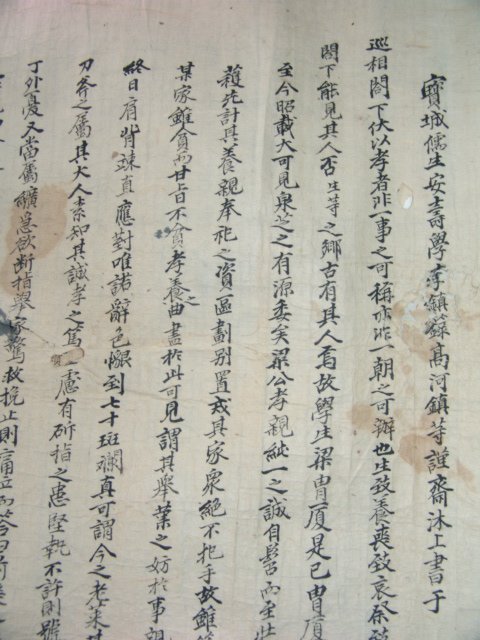 寶城儒生安壽學李鎭蘇高河鎭等謹齋沐上書于
巡相閤下伏以孝者非一事之可稱亦非一朝之可辦也生致養喪致哀祭
閤下能見其人否生等之鄕古有其人焉故學生梁冑厦是已冑厦
至今昭載大可見泉芝之有源委矣梁公孝親純一之誠自髫而至
先計其養親奉祀之資區劃別置戒其家衆絶不把手故雖
某家雖貧而甘旨不貧孝養之曲盡於此可見謂其擧業之妨於事親
終日肩背竦直應對唯諾辭色愜到七十斑斕眞可謂今之老萊
刀斧之屬其大人素知其誠孝之篤慮有斫指之患堅執不許則
丁外憂又當屬纊急欲斷指擧家驚救挽止則